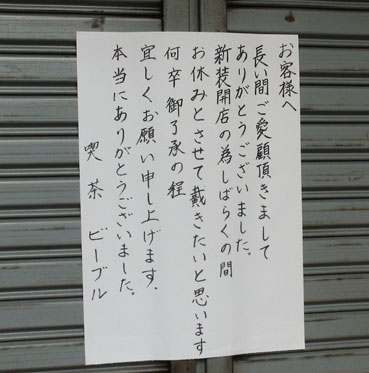 お客様へ
長い間ご愛顧頂きまして
ありがとうございました。
新装開店の為しばらくの間
お休みとさせて戴きたいと思います
何卒御了承の程
宜しくお願い申し上げます。
本当にありがとうございました。
喫茶 ビーブル